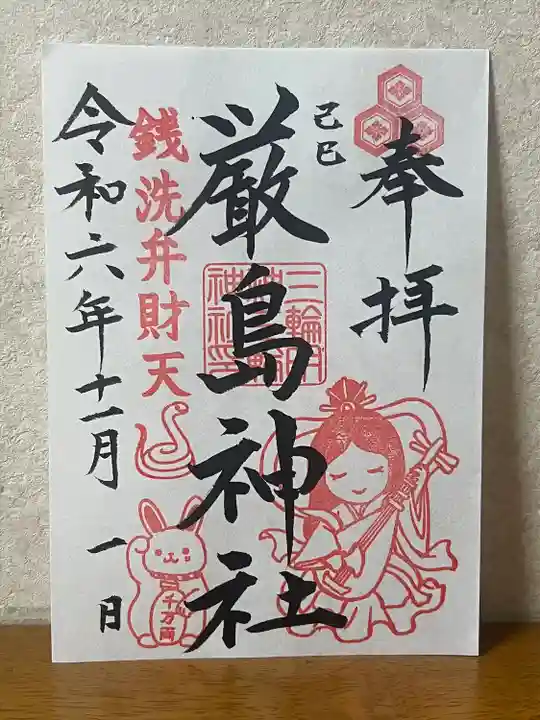 奉拝
己巳
厳島神社
三輪明神
神社
銭洗弁財天
千万両
令和六年十一月一日